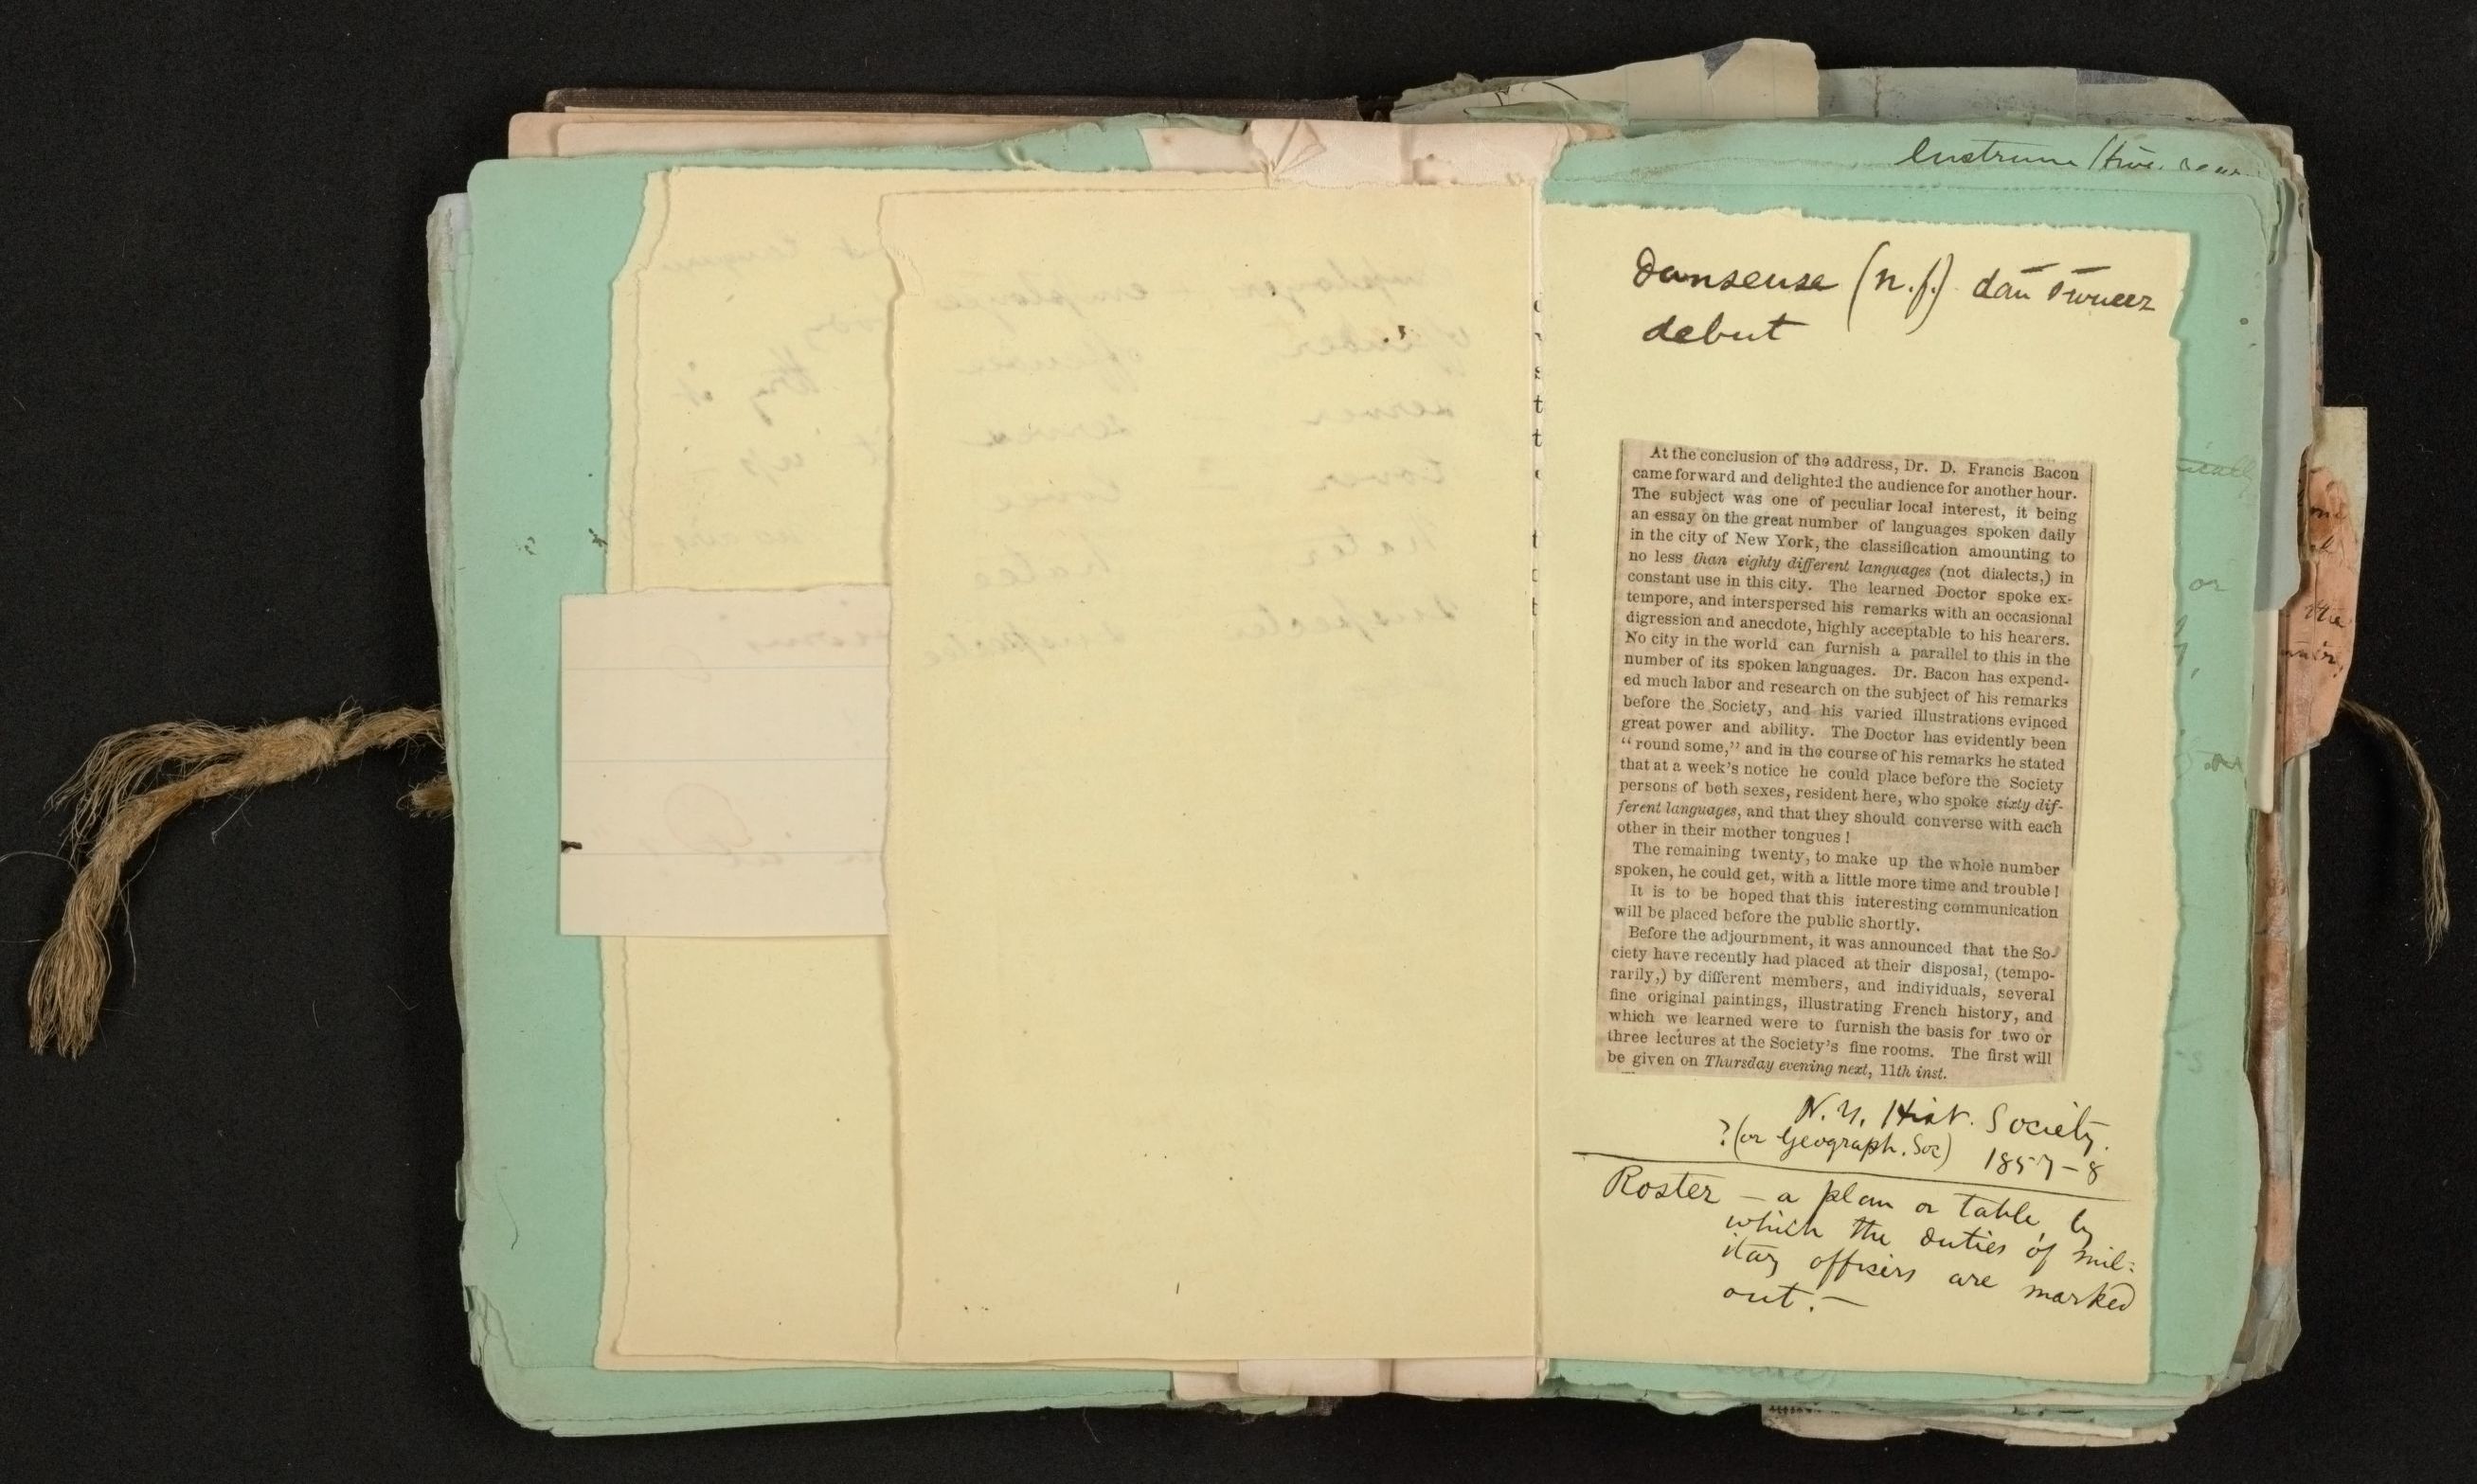 lustrum / five
Danseuse (n.f.)
debut
At the conclusion of the address, Dr. D. Francis Bacon
came forward and delighted the audience for another hour.
The subject was one of peculiar local interest, it being
an essay on the great number of languages spoken daily
in the city of New York, the classification amounting to
no less than eighty different languages (not dialects,) in
constant use in this city. The learned Doctor spoke ex-
tempore, and interspersed his remarks with an occasional
digression and anecdote, highly acceptable to his hearers.
No city in the world can furnish a parallel to this in the
number of its spoken languages. Dr. Bacon has expend-
ed much labor and research on the subject of his remarks
before the Society, and his varied illustrations evinced
great power and ability. The Doctor has evidently been
“round some,” and in the course of his remarks he stated
that at a week's notice he could place before the Society
persons of both sexes, resident here, who spoke sixty dif-
ferent languages, and that they should converse with each
other in their mother tongues!
The remaining twenty, to make up the whole number
spoken, he could get, with a little more time and trouble!
It is to be hoped that this interesting communication
will be placed before the public shortly.
Before the adjournment, it was announced that the So-
ciety have recently had placed at their disposal, (tempo-
rarily,) by different members, and individuals, several
fine original paintings, illustrating French history, and
which we learned were to furnish the basis for two or
three lectures at the Society's fine rooms. The first will
be given on Thursday evening next, 11th inst.
N.Y. Hist. Society.
?(or Geograph. Soc) 1857-8
Roster – a plan or table, by
which the duties of mil-
itay officers are marked
out. –
or
the